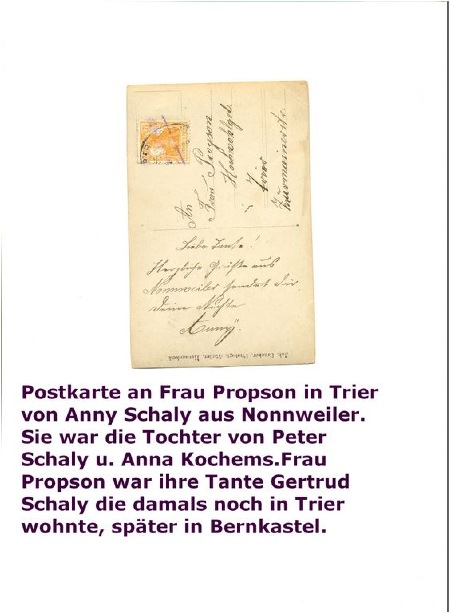 An
Frau Propson
Hochwohlgeb.
Trier
Liebe Tante!
Herzliche Grüße aus
Nonnweiler sendet dir
deine Nichte
Anny.
Postkarte an Frau Propson in Trier
von Anny Schaly aus Nonnweiler.
Sie war die Tochter von Peter
Schaly u. Anna Kochems.Frau
Propson war ihre Tante Gertrud
Schaly die damals noch in Trier
wohnte, später in Bernkastel.